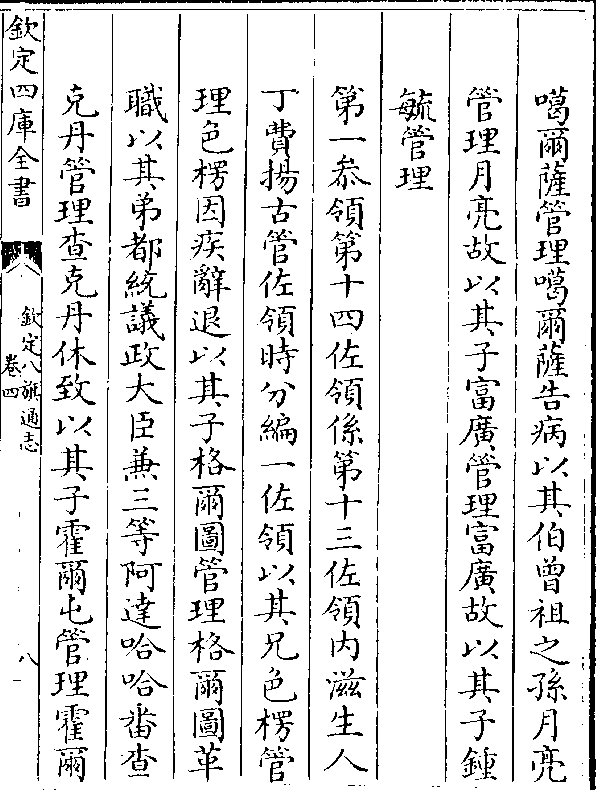 噶爾薩管理噶爾薩告病以其伯曾祖之孫月亮
管理月亮故以其子富廣管理富廣故以其子鍾
毓管理
第一叅領第十四佐領係第十三佐領内滋生人
丁費揚古管佐領時分編一佐領以其兄色楞管
理色楞因疾辭退以其子格爾圖管理格爾圖革
職以其弟都統議政大臣兼三等阿達哈哈番查
克丹管理查克丹休致以其子霍爾屯管理霍爾
欽定四庫全書
欽定八旗通志
卷四
八